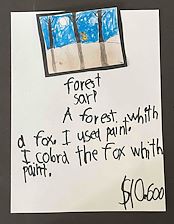 forest
sarp
A forest whith
a fox. I used paint.
I cobrd the fox whith
paint.
$10.600